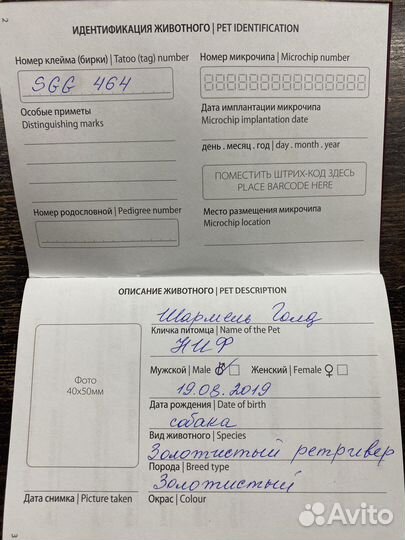 2
ИДЕНТИФИКАЦИЯ ЖИВОТНОГО | PET IDENTIFICATION
Номер клейма (бирки) | Tatoo (tag) number
SGG 464
Особые приметы
Distinguishing marks
Номер родословной | Pedigree number
Номер микрочипа | Microchip number
Дата имплантации микрочипа
Microchip implantation date
день . месяц . год | day . month . year
ПОМЕСТИТЬ ШТРИХ-КОД ЗДЕСЬ
PLACE BARCODE HERE
Место размещения микрочипа
Microchip location
ОПИСАНИЕ ЖИВОТНОГО | PET DESCRIPTION
Шармель Голд
Кличка питомца | Name of the Pet
НИФ
Мужской | Male ♂ Женский | Female ♀
19.08.2019
Дата рождения | Date of birth
собака
Вид животного | Species
Золотистый ретривер
Порода | Breed type
Золотистый
Окрас | Colour
Фото
40х50мм
Дата снимка | Picture taken
3
Avito